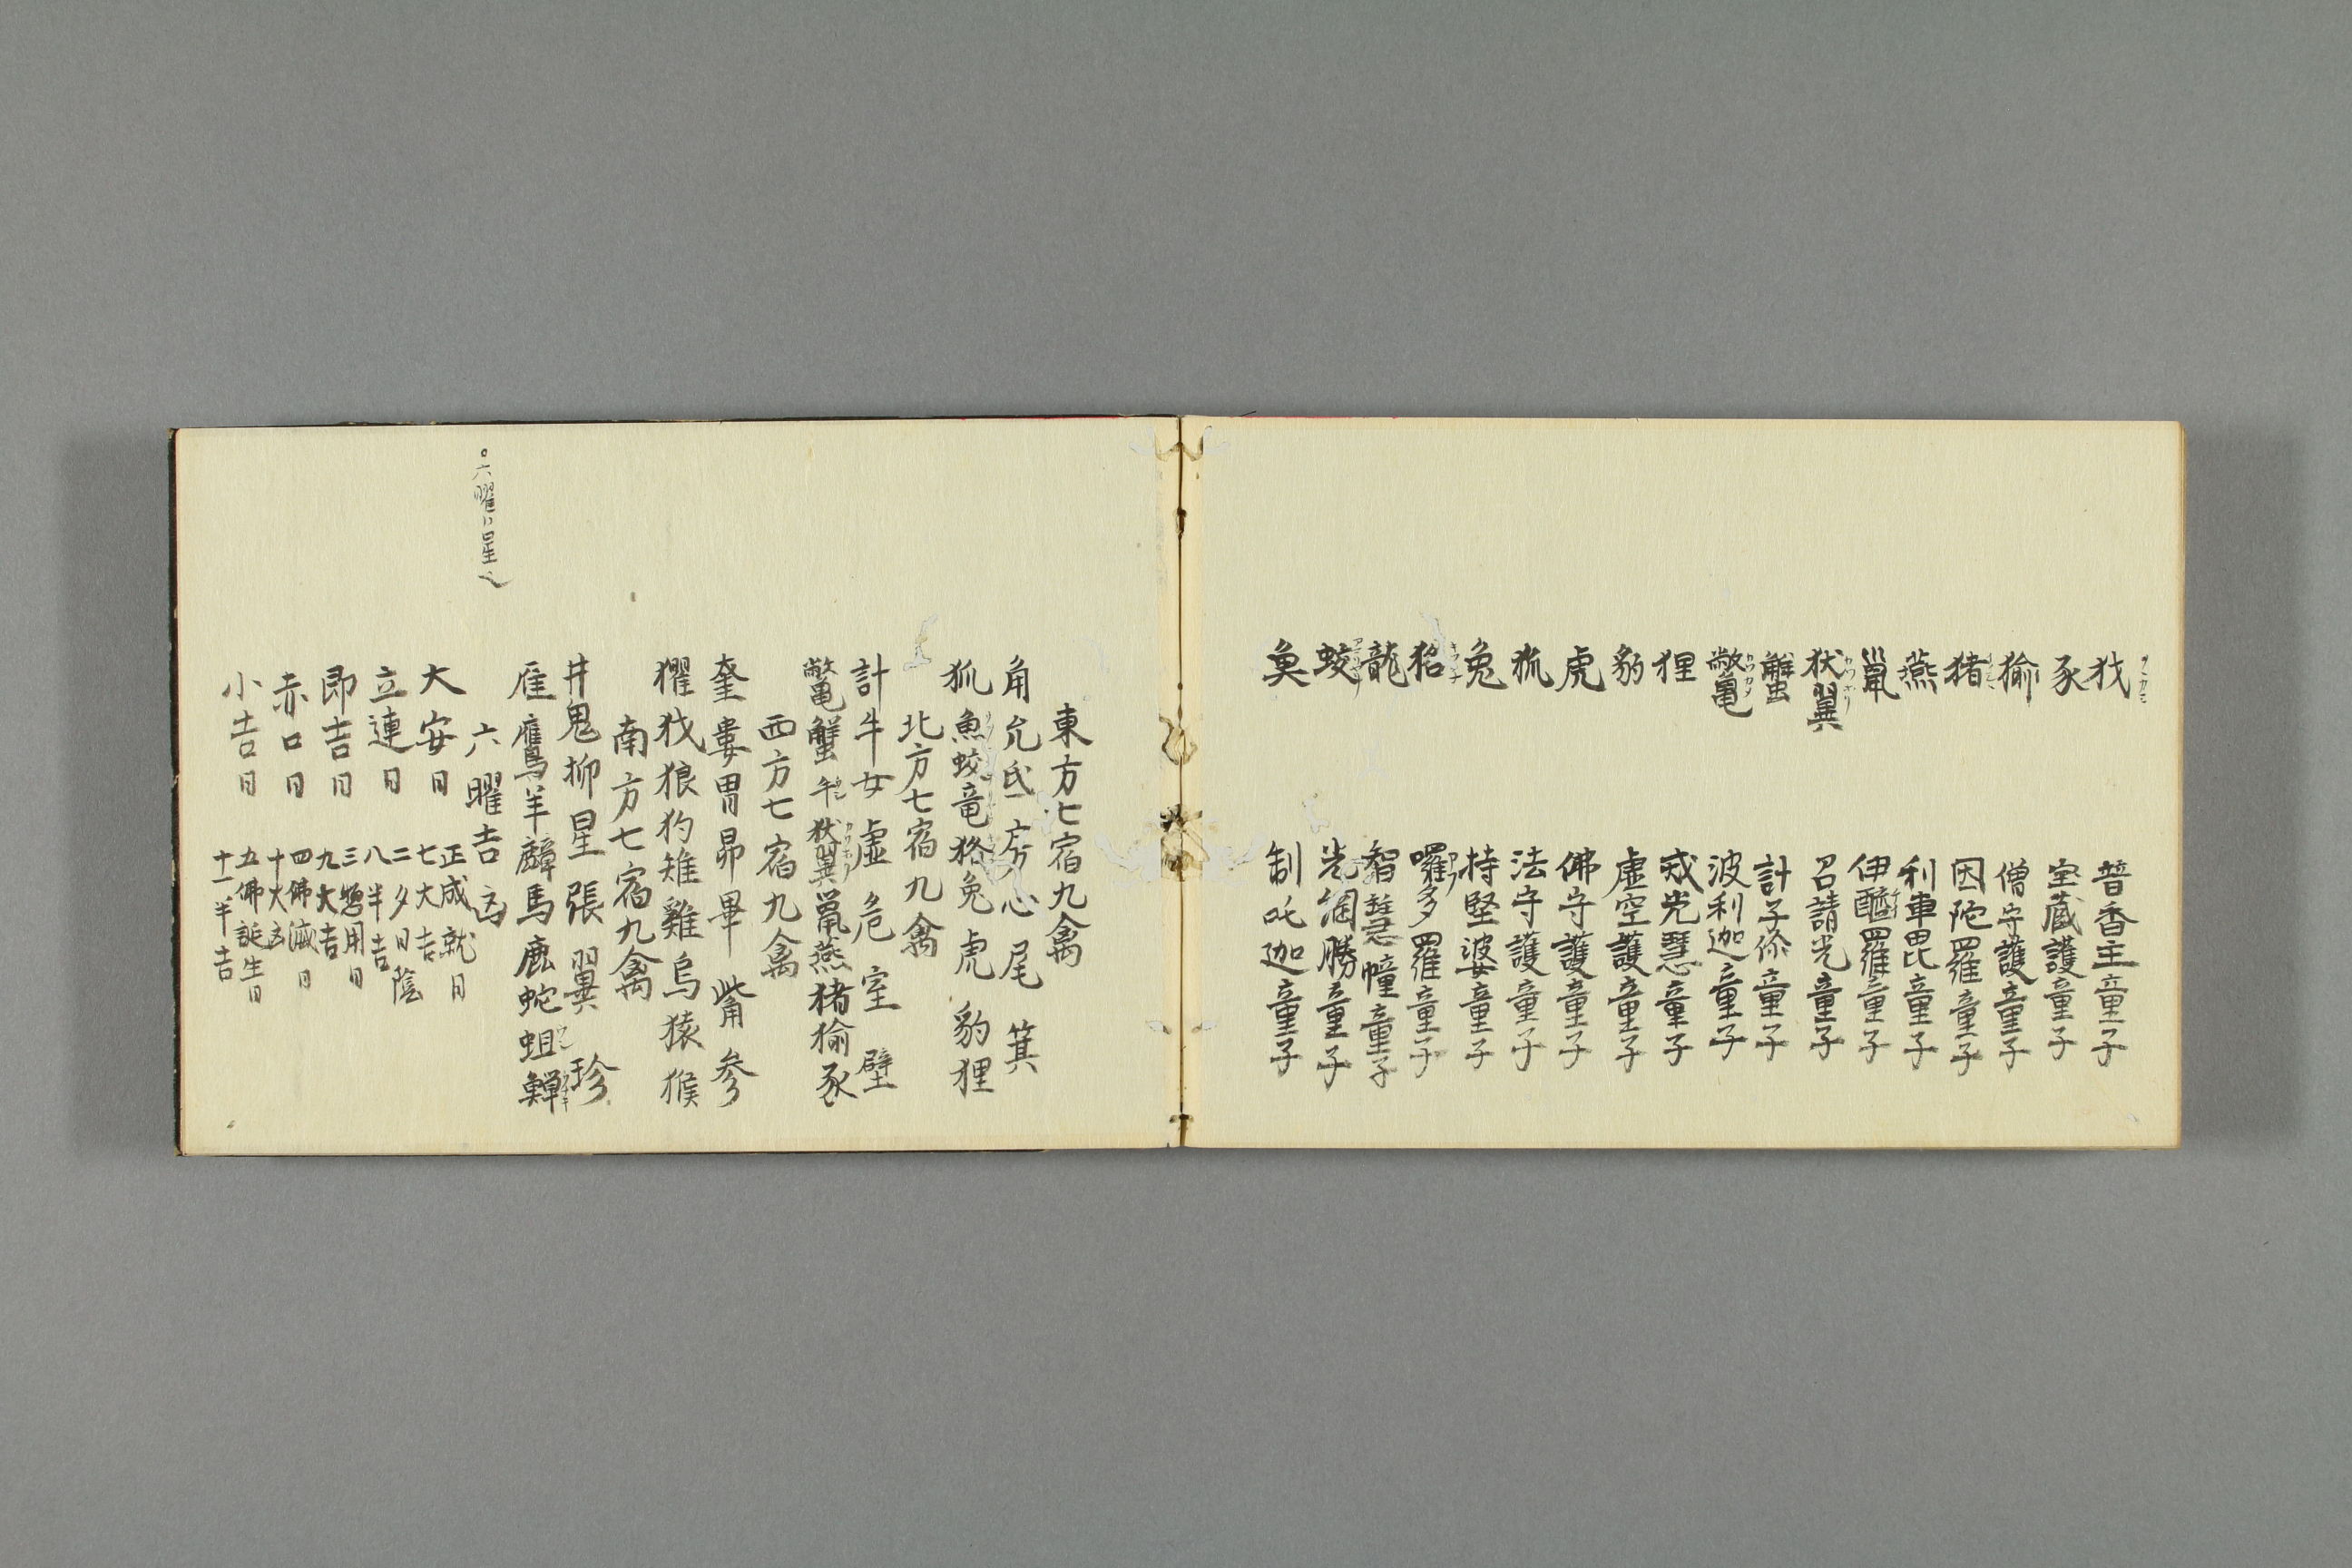 犲 普香主童子
豕 宝蔵護童子
㺄 僧守護童子
猪 因陀羅童子
燕 利車毘童子
鼠 伊醯羅童子
伏翼 召請光童子
蟹 計子你童子
鼈 波利迦童子
狸 戒光慧童子
豹 虚空護童子
虎 佛守護童子
狐 法守護童子
兔 持堅婆童子
狢 囉多羅童子
龍 智慧幢童子
蛟 光網勝童子
魚 制吒迦童子
東方七宿九禽
角亢氐房心尾箕
狐魚蛟竜狢兔虎豹狸
北方七宿九禽
計牛女虚危室壁
鼈蟹牛伏翼鼠燕猪㺄豕
西方七宿九禽
奎婁胃昴畢觜参
玃犲狼狗雉雞烏猿猴
南方七宿九禽
井鬼柳星張翼珍
雁鷹羊麞馬鹿蛇蛆鱓
。六曜ハ星也
六曜吉凶
大安日 正成就日 七大吉
立連日 二夕日陰 八半吉
即吉日 三惣用日 九大吉
赤口日 四佛滅日 十大凶
小吉日 五佛誕生日 十一半吉